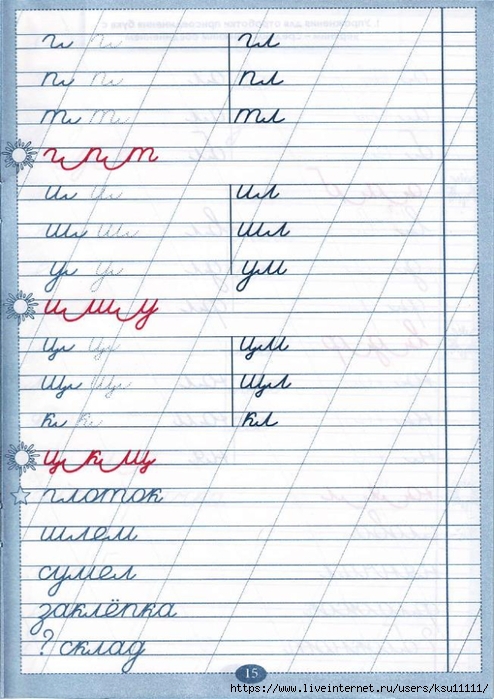 г г гл
п п пл
т т тл
г п т
и и ил
ш ш шл
у у ум
и ш у
ц ц цм
щ щ щл
к к кл
ц к щ
глоток
шлем
сумел
заклёпка
? склад
15
https://www.liveinternet.ru/users/ksu11111/